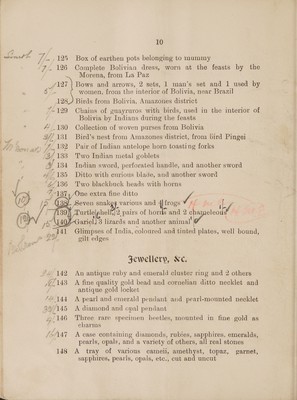 10
125 Box of earthen pots belonging to mummy
126 Complete Bolivian dress, worn at the feasts by the
Morena, from La Paz
127 Bows and arrows, 2 sets, 1 man's set and 1 used by
women, from the interior of Bolivia, near Brazil
128 Birds from Bolivia, Amazones district
129 Chains of guayruros with birds, used in the interior of
Bolivia by Indians during the feasts
130 Collection of woven purses from Bolivia
131 Bird's nest from Amazones district, from bird Pingsi
132 Pair of Indian antelope horn toasting forks
133 Two Indian metal goblets
134 Indian sword, perforated handle, and another sword
135 Ditto with curious blade, and another sword
136 Two blackbuck heads with horns
137 One extra fine ditto
138 Seven snakes various and frogs
139 Turtle shell, 2 pairs of horns and 2 chameleons
140 Gariel, 3 lizards and another animal
141 Glimpses of India, coloured and tinted plates, well bound,
gilt edges
Jewellery, &c.
142 An antique ruby and emerald cluster ring and 2 others
143 A fine quality gold bead and cornelian ditto necklet and
antique gold locket
144 A pearl and emerald pendant and pearl-mounted necklet
145 A diamond and opal pendant
146 Three rare specimen beetles, mounted in fine gold as
charms
147 A case containing diamonds, rubies, sapphires, emeralds,
pearls, opals, and a variety of others, all real stones
148 A tray of various cameii, amethyst, topaz, garnet,
sapphires, pearls, opals, etc., cut and uncut